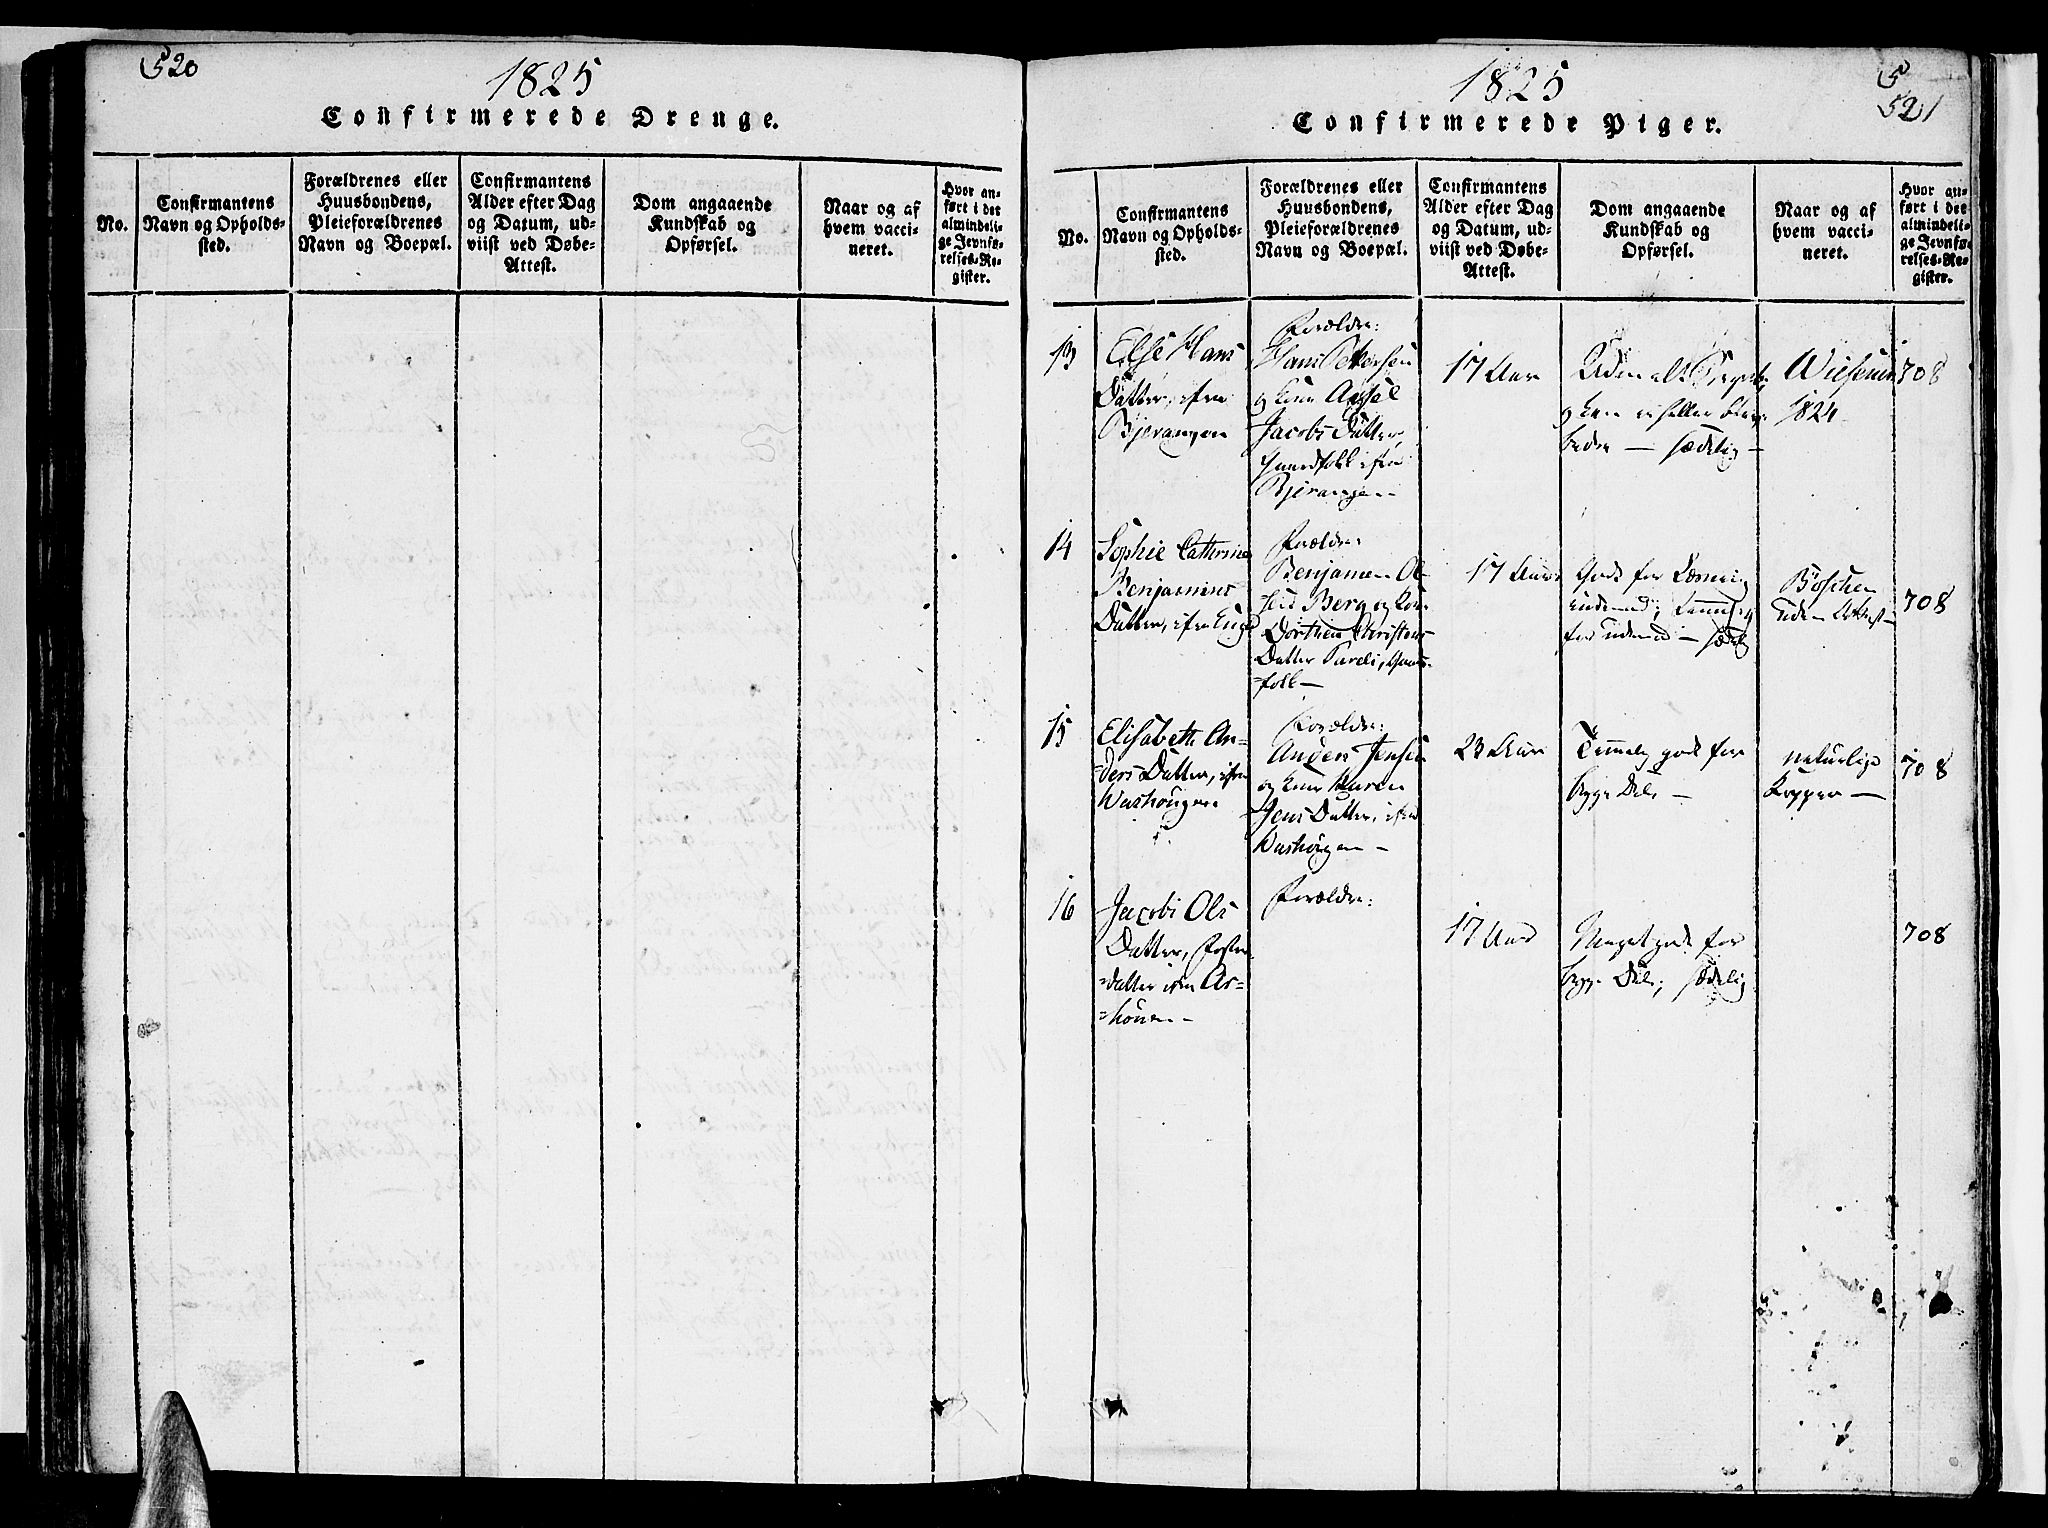 520
1825
Confirmerede Drenge.
No.
Confirmantens
Navn og Opholds-
sted.
Forældrenes eller
Huusbondens,
Pleieforældrenes
Navn og Boepæl.
Confirmantens
Alder efter Dag
og Datum, ud-
viist ved Døbe-
Attest.
Dom angaaende
Kundskab og
Opførsel.
Naar og af
hvem vacci-
neret.
Hvor an-
ført i det
almindeli-
ge Jevnfø-
relses-Re-
gister.
1825
5
521
Confirmerede Piger.
No.
Confirmantens
Navn og Opholds-
sted.
Forældrenes eller
Huusbondens,
Pleieforældrenes
Navn og Boepæl.
Confirmantens
Alder efter Dag
og Datum, ud-
viist ved Døbe-
Attest.
Dom angaaende
Kundskab og
Opførsel.
Naar og af
hvem vacci-
neret.
Hvor an-
ført i det
almindeli-
ge Jevnfø-
relses-Re-
gister.
13
Else Hans
Datter,
Bjerangen
Forældre:
Hans Petersen
og Kone
Jacobs Datter,
Bjerangen
17 Aar
Uden al
og kan ei heller
bedre — sædelig —
1824
708
14
Sophie Cathrine
Benjamins
Datter,
Forældre
Benjamen Ol-
sen Berg og Kone
Dorthea Christens
Datter
folk —
17 Aar
Godt for
udenad;
for udenad — sædelig
uden Attest —
708
15
Elisabeth An-
ders Datter,
Forældre:
Anders Jensen
og Kone Karen
Jens Datter,
23 Aar
Temmelig godt for
begge Dele —
naturlige
Kopper —
708
16
Jacobi Ols
Datter, Foster-
datter
Forældre:
17 Aar
Meget godt for
begge Dele; sædelig
708